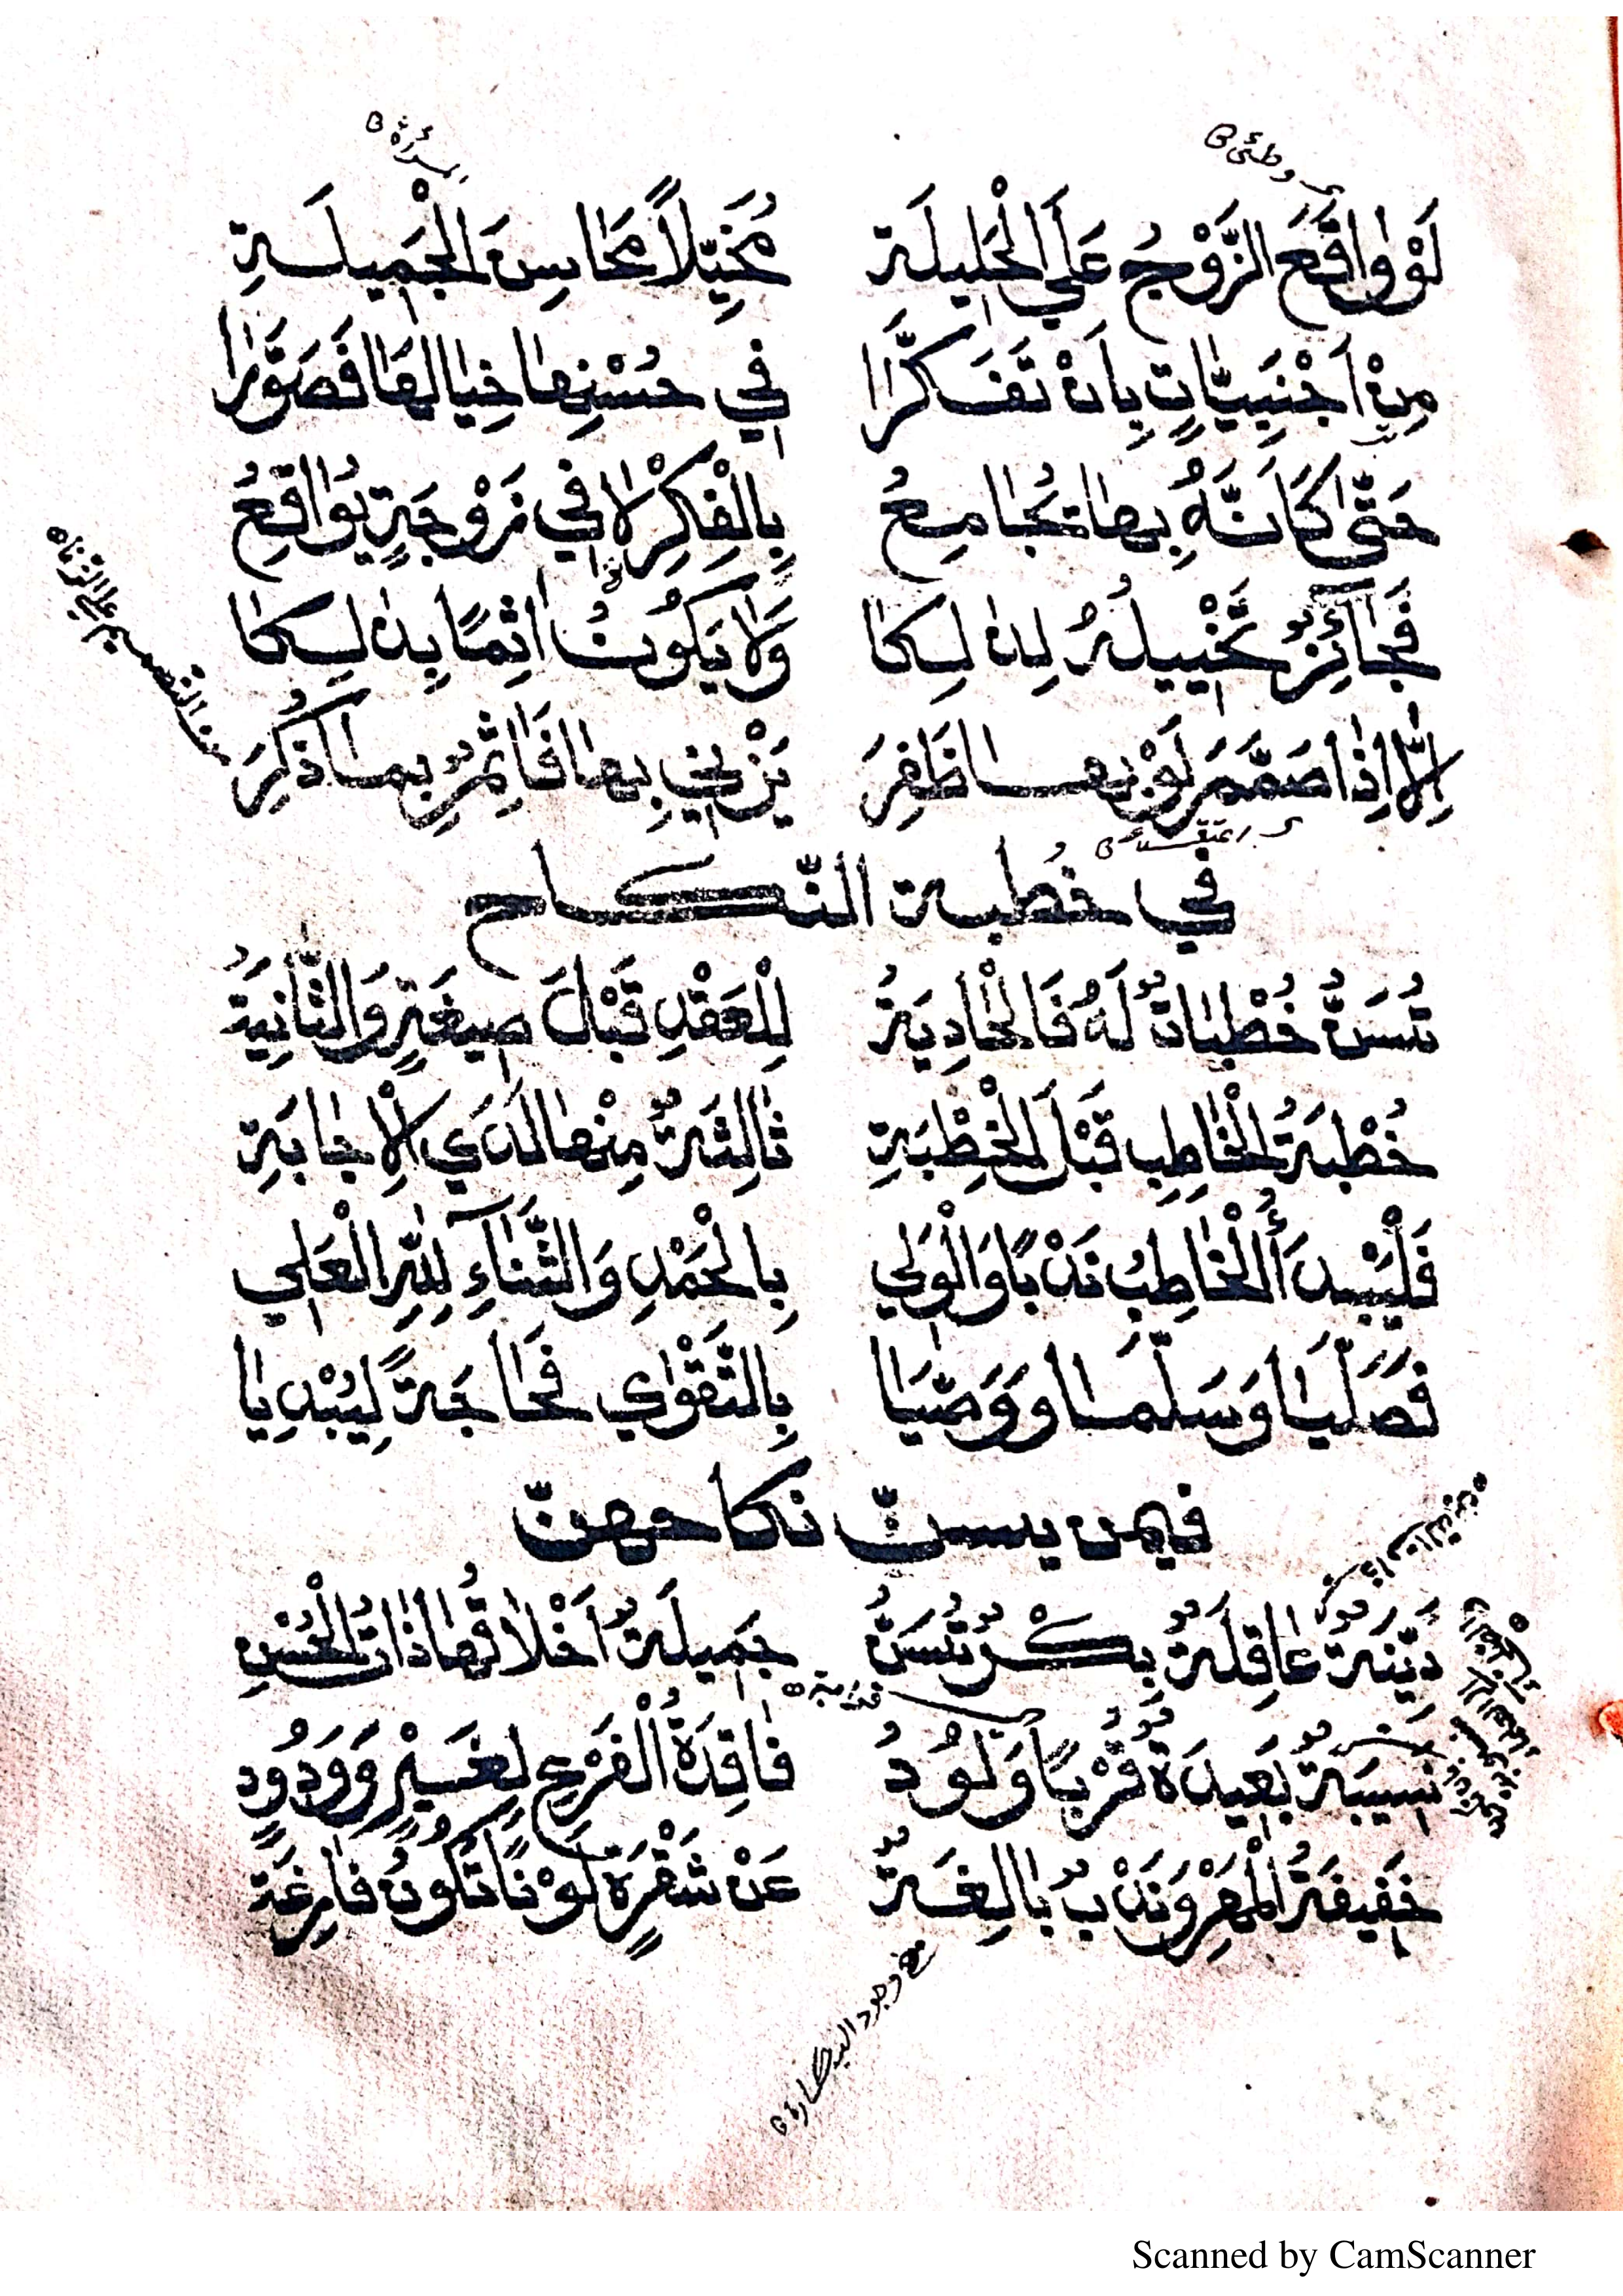 وطئ
امرأة
لَوْ وَاقَعَ الزَّوْجُ عَلَي الْحَلِيلَة مُخَيِّلاً مَحَاسِنَ الْجَمِيلَةِ
مِنْ اَجْنَبِيَّاتٍ بِاَنْ تَفَكَّرَا فِي حُسْنِهَا خِيَالَهَا فَصَوَّرَا
حَتَّى كَاَنَّهُ بِهَا يُجَامِعُ بِالْفِكْرِ لَا فِي زَوْجَةٍ يُوَاقِعُ
فَجَائِزٌ تَخْيِيلُهُ لِذَلِكَا وَلَا يَكُونُ اٰثِمًا بِذَلِكَا
اِلَّا اِذَا صَمَّمَ لَوْ بِهَا ظَفِرَ يَزْنِي بِهَا فَاٰثِمٌ بِمَا ذُكِرَ
من التصميم على الزناه
في خُطبة النّكاح
تُسَنُّ خُطْبَاتٌ لَهُ فَالْحَادِيَةُ لِلْعَقْدِ قَبْلَ صِيغَةٍ وَالثَّانِيَةُ
خُطْبَةُ الْخَاطِبِ قَبْلَ الْخِطْبَةِ ثَالِثَةٌ مِنْهَا لَدَي الْاِجَابَةِ
فَلْيَبْدَأُ الْخَاطِبُ نَدْبًا وَالْوَلِي بِالْحَمْدِ وَالثَّنَآءِ لِلّٰهِ الْعَلِي
فَصَلَّيَا وَسَلَّمَا وَوَصَّيَا بِالتَّقْوَي فَحَاجَةً لِيُبْدِيَا
فيمن يسنّ نكاحهنّ
دَيِّنَةٌ عَاقِلَةٌ بِكْرٌ تُسَنُّ جَمِيلَةٌ اَخْلَاقُهَا ذَاتُ الْحُسْنِ
نَسِيبَةٌ بَعِيدَةٌ قُرْبًا وَلُودُ فَاقِدَةُ الْفَرْعِ لِغَيْرٍ وَوَدُودٍ
خَفِيفَةُ الْمَهْرِ وَنَدْبٌ بَالِغَةٌ عَنْ شَقْرَةٍ لَوْنًا تَكُونُ فَارِغَةً
مع وجود البكارة
Scanned by CamScanner